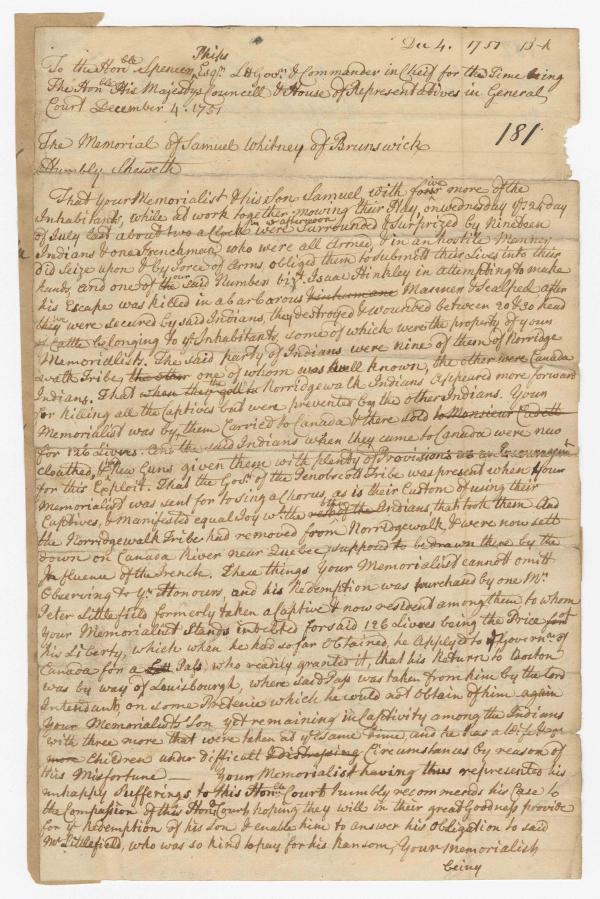 Dec 4. 1751
To the Honble Spencer Phips Esqr. Lt Govr. & Commander in Cheif for the Time being
The Honble His Majestys Councill & House of Representatives in General
Court December 4. 1751
181
The Memorial of Samuel Whitney of Brunswick
Humbly Sheweth
That your Memorialist & his Son Samuel with five more of the
Inhabitants, while at work together mowing their Hay, on wednesday ye 24 day
of July last about two a Clock in ye afternoon were Surrounded & Surprized by Nineteen
Indians & one Frenchman, who were all Armed, & in an hostile Manner
did Seize upon & by Force of Arms obliged them to submitt their Lives into their
hands, and one of your said Number Isaac Hinkley in attempting to make
his Escape was killed in a barbarous inhumane Manner & Scalped, after
they were secured by said Indians, they destroyed & wounded between 20 & 30 head
of Cattle belonging to ye Inhabitants, some of which were the property of your
Memorialist. The said party of Indians were nine of them of Norridge
walk Tribe, the other one of whom was well known, the other were Canada
Indians. That when they the Norridgewalk Indians appeared more forward
for killing all the Captives but were prevented by the other Indians. Your
Memorialist was by them Carried to Canada & there sold to Monsieur
for 126 Livres. And the said Indians when they came to Canada were new
cloathed, & new Guns given them with plenty of Provisions as an Encouragemt
for this Exploit. That the Govr. of the Penobscott Tribe was present when your
Memorialist was sent for to sing a Chorus, as is their Custom of using their
Captives, & manifested equal Joy with the rest of the Indians, that took them And
the Norridgewalk Tribe had removed from Norridgewalk & were now sett
down on Canada River near Quebec, supposed to be drawn there by the
Influence of the French. These things Your Memorialist cannot omitt
Observing to yr. Honours, and his Redemption was purchased by one Mr.
Peter Littlefield formerly taken a Captive & now resident among them to whom
Your Memorialist Stands indebted for said 126 Livres being the Price for
his Liberty, which when he had so far Obtained, he applyed to ye Governr. of
Canada for a Pass, who readily granted it, that his Return to Boston
was by way of Louisbourgh, where said Pass was taken from him by the Lord
Intendant, on some Pretence which he could not Obtain of him again
Your Memorialists Son yet remaining in Captivity among the Indians
with three more that were taken at ye same Time, and he has a Wife &
more Children under difficult Distressing Circumstances by reason of
this Misfortune — Your Memorialist having thus represented his
unhappy Sufferings to this Honble Court humbly recommends his Case to
the Compassion of this Honble Court, hoping they will in their great Goodness provide
for ye Redemption of his Son & enable him to answer his Obligation to said
Mr. Littlefield, who was so kind to pay for his Ransom, Your Memorialist
being